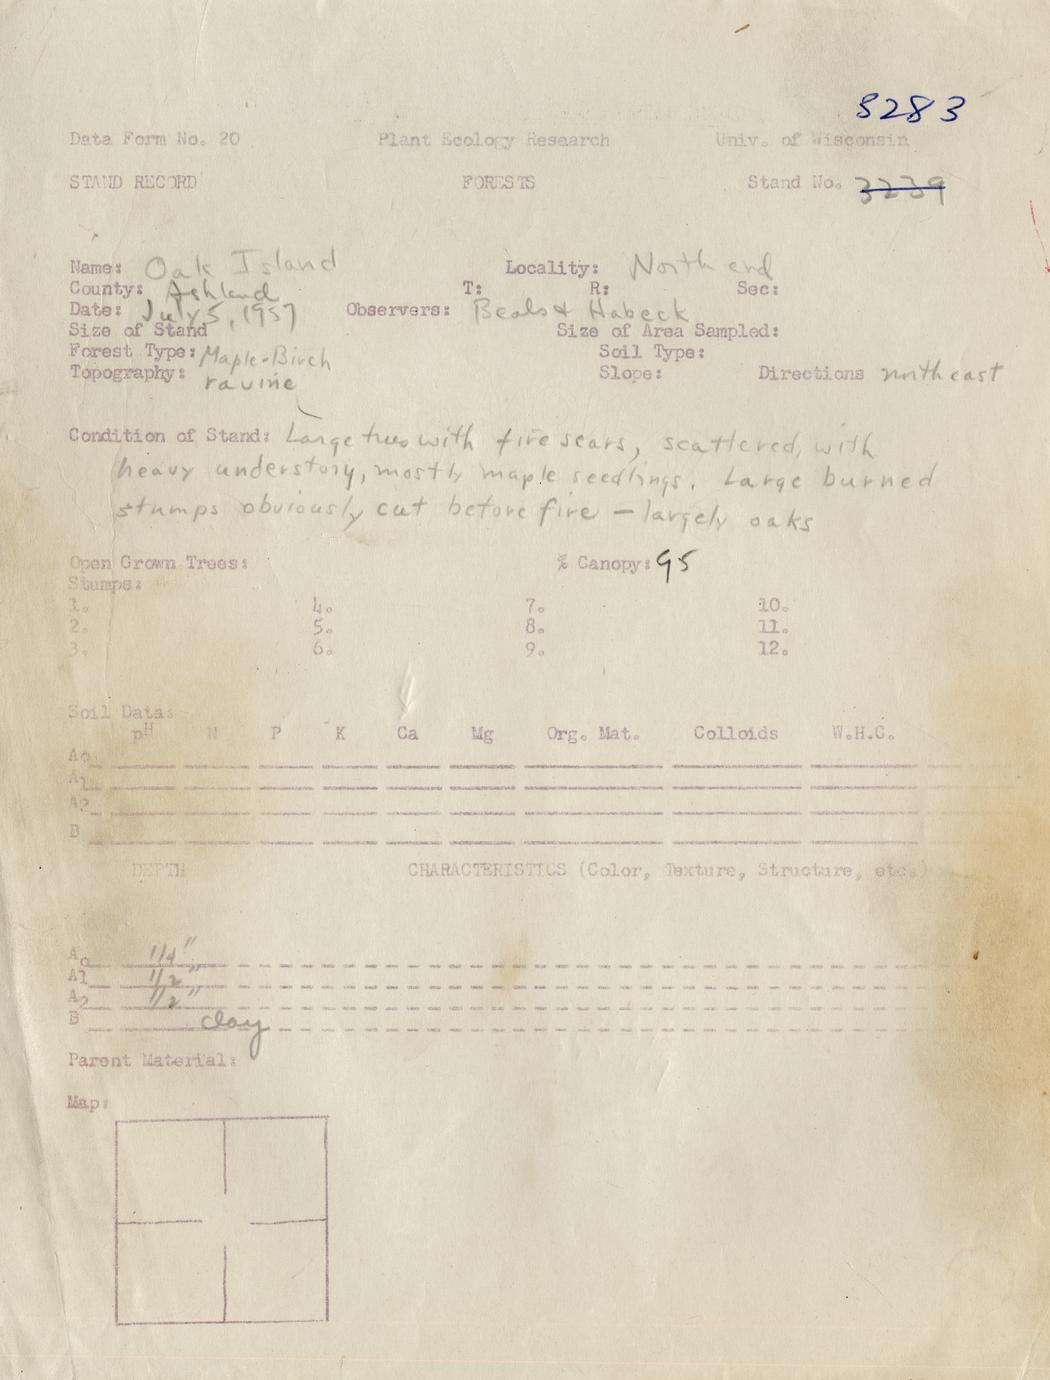 8283
Data Form No. 20 Plant Ecology Research Univ. of Wisconsin
STAND RECORD FORESTS Stand No. 3239
Name: Oak Island Locality: North end
County: Ashland T: R: Sec:
Date: July 5, 1957 Observers: Beals & Habeck
Size of Stand Size of Area Sampled:
Forest Type: Maple-Birch Soil Type:
Topography: ravine Slope: Directions northeast
Condition of Stand: Large trees with fire scars, scattered, with
heavy understory, mostly maple seedlings. Large burned
stumps obviously cut before fire – largely oaks
Open Grown Trees: % Canopy: 95
Stumps:
1. 4. 7. 10.
2. 5. 8. 11.
3. 6. 9. 12.
Soil Data:
pH N P K Ca Mg Org. Mat. Colloids W.H.C.
Ao
A1
A2
B
DEPTH CHARACTERISTICS (Color, Texture, Structure, etc.)
Ao 1/4"
A1 1/2"
A2 1/2"
B clay
Parent Material:
Map: